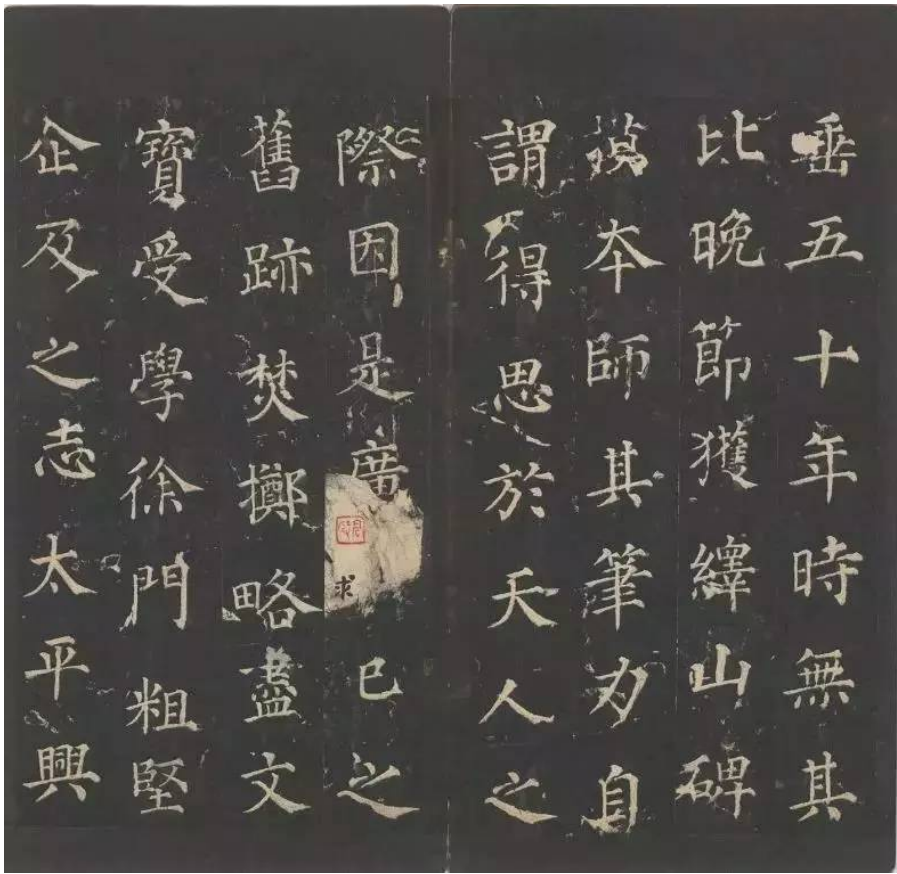 垂五十年時無其
比晚節獲繹山碑
摸夲師其筆力自
謂得思於天人之
際因是廣求已之
舊跡焚擲略盡文
寶受學徐門粗堅
企及之志太平興